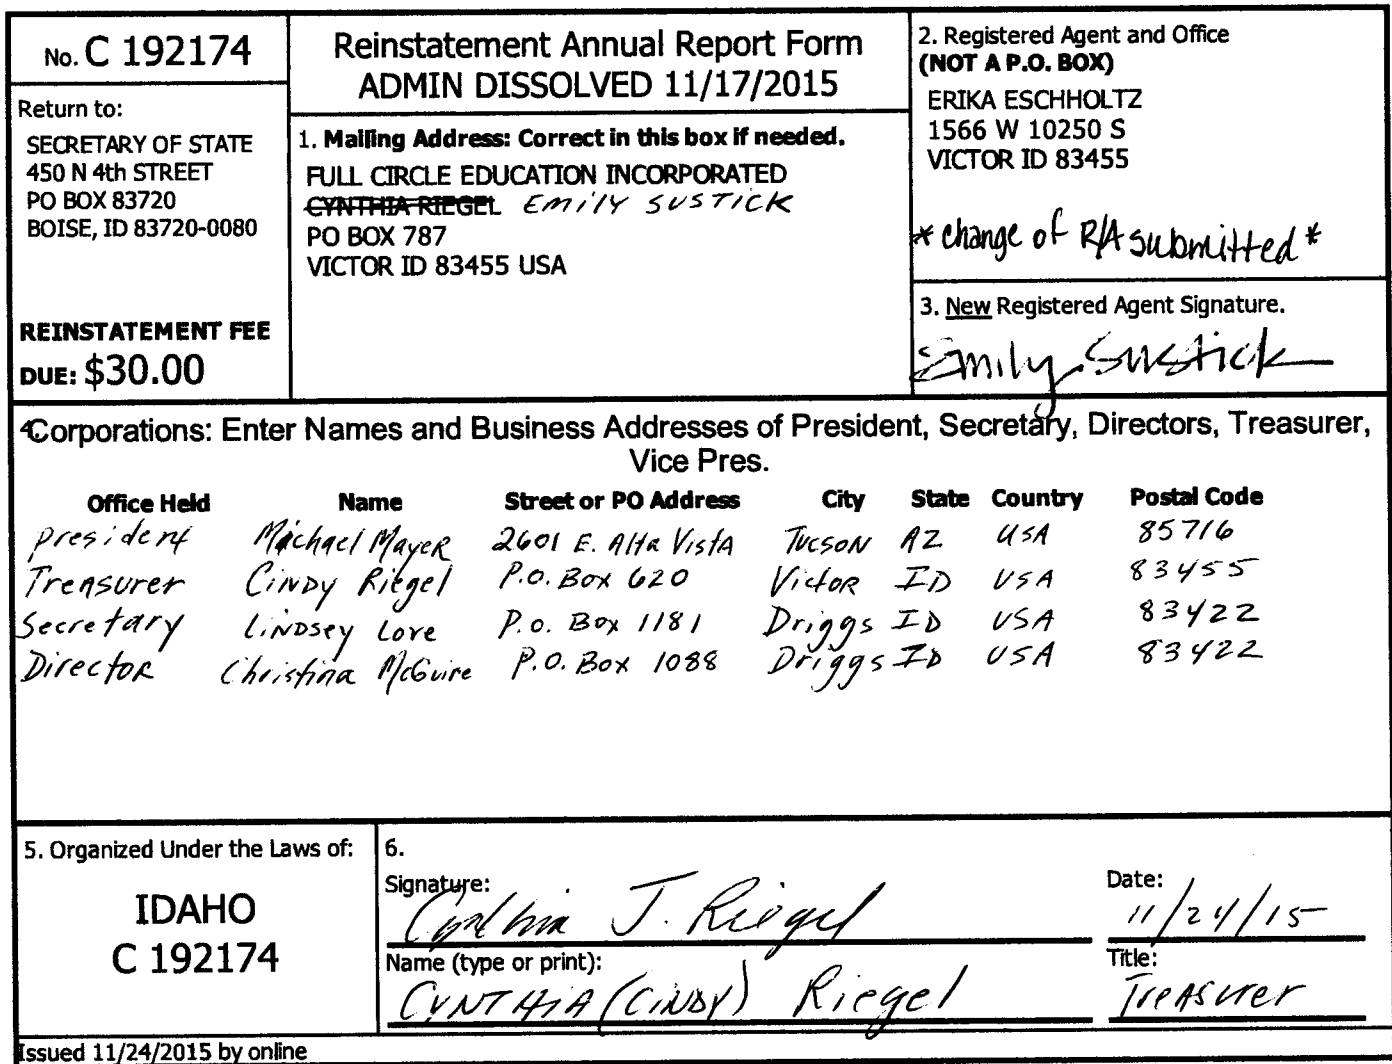 No. C 192174
Return to:
SECRETARY OF STATE
450 N 4th STREET
PO BOX 83720
BOISE, ID 83720-0080
REINSTATEMENT FEE
DUE: $30.00
Reinstatement Annual Report Form
ADMIN DISSOLVED 11/17/2015
1. Mailing Address: Correct in this box if needed.
FULL CIRCLE EDUCATION INCORPORATED
CYNTHIA RIEGEL EMILY SUSTICK
PO BOX 787
VICTOR ID 83455 USA
2. Registered Agent and Office
(NOT A P.O. BOX)
ERIKA ESCHHOLTZ
1566 W 10250 S
VICTOR ID 83455
* change of R/A submitted *
3. New Registered Agent Signature.
Emily Sustick
4. Corporations: Enter Names and Business Addresses of President, Secretary, Directors, Treasurer,
Vice Pres.
Office Held Name Street or PO Address City State Country Postal Code
President Michael Mayer 2601 E. Alta Vista Tucson AZ USA 85716
Treasurer Cindy Riegel P.O. Box 620 Victor ID USA 83455
Secretary Lindsey Love P.O. Box 1181 Driggs ID USA 83422
Director Christina McGuire P.O. Box 1088 Driggs ID USA 83422
5. Organized Under the Laws of:
IDAHO
C 192174
6.
Signature: Cynthia J. Riegel
Date: 11/24/15
Name (type or print): CYNTHIA (CINDY) Riegel
Title: Treasurer
Issued 11/24/2015 by online